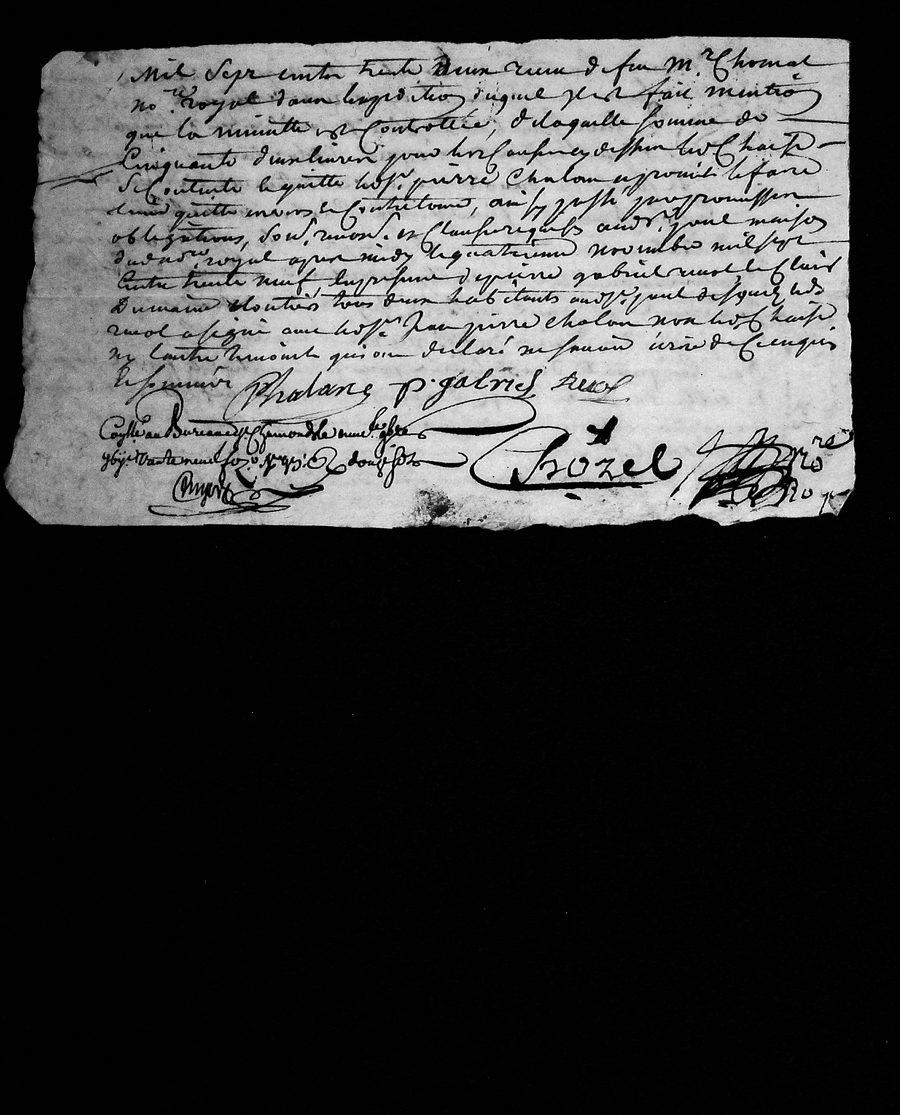 Mil Sept centz trente deux receu de feu Mr. Chomat
nore. royal dans lexpedition duquel il est fait mention
que la minutte est Controllée, de laquelle somme de
Cinquante deux livres pour les causes cy dessus led. Chaise
se Contente quitte led. sr. pierre Chalan a promis le faire
tenir quitte envers et Contre tous, ainsy passé par promission
obligations, soub. renon. et Clauses requises aud. st. paul maison
dud. nore. royal apres midy le quatrieme novembre mil sept
centz trente neuf, En presence de pierre gabriel ruol le Clair
Du maine cloutier tous deux habitants aud. st. paul desquels led.
ruol a signé avec led. sr. Jean pierre Chalan non led. Chaise
ny lautre temoint qui ont declaré ne savoir ecrire de Ce enquis
et sommés
Chalanc p. gabriel ruol
Conlle au Bureau de St. chamond le neuf 9bre
trente neuf fo. douze sols
Crozel nore